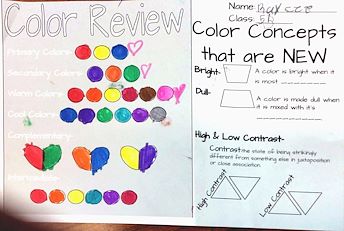 Color Review
Primary Colors-
Secondary Colors-
Warm Colors-
Cool Colors-
Complementary-
Intermediate-
Name:
Class: 5b
Color Concepts
that are NEW
Bright- A color is bright when it
is most
Dull- A color is made dull when
it is mixed with it's
High & Low Contrast-
Contrast-the state of being strikingly
different from something else in juxtaposition
or close association.
High Contrast
Low Contrast